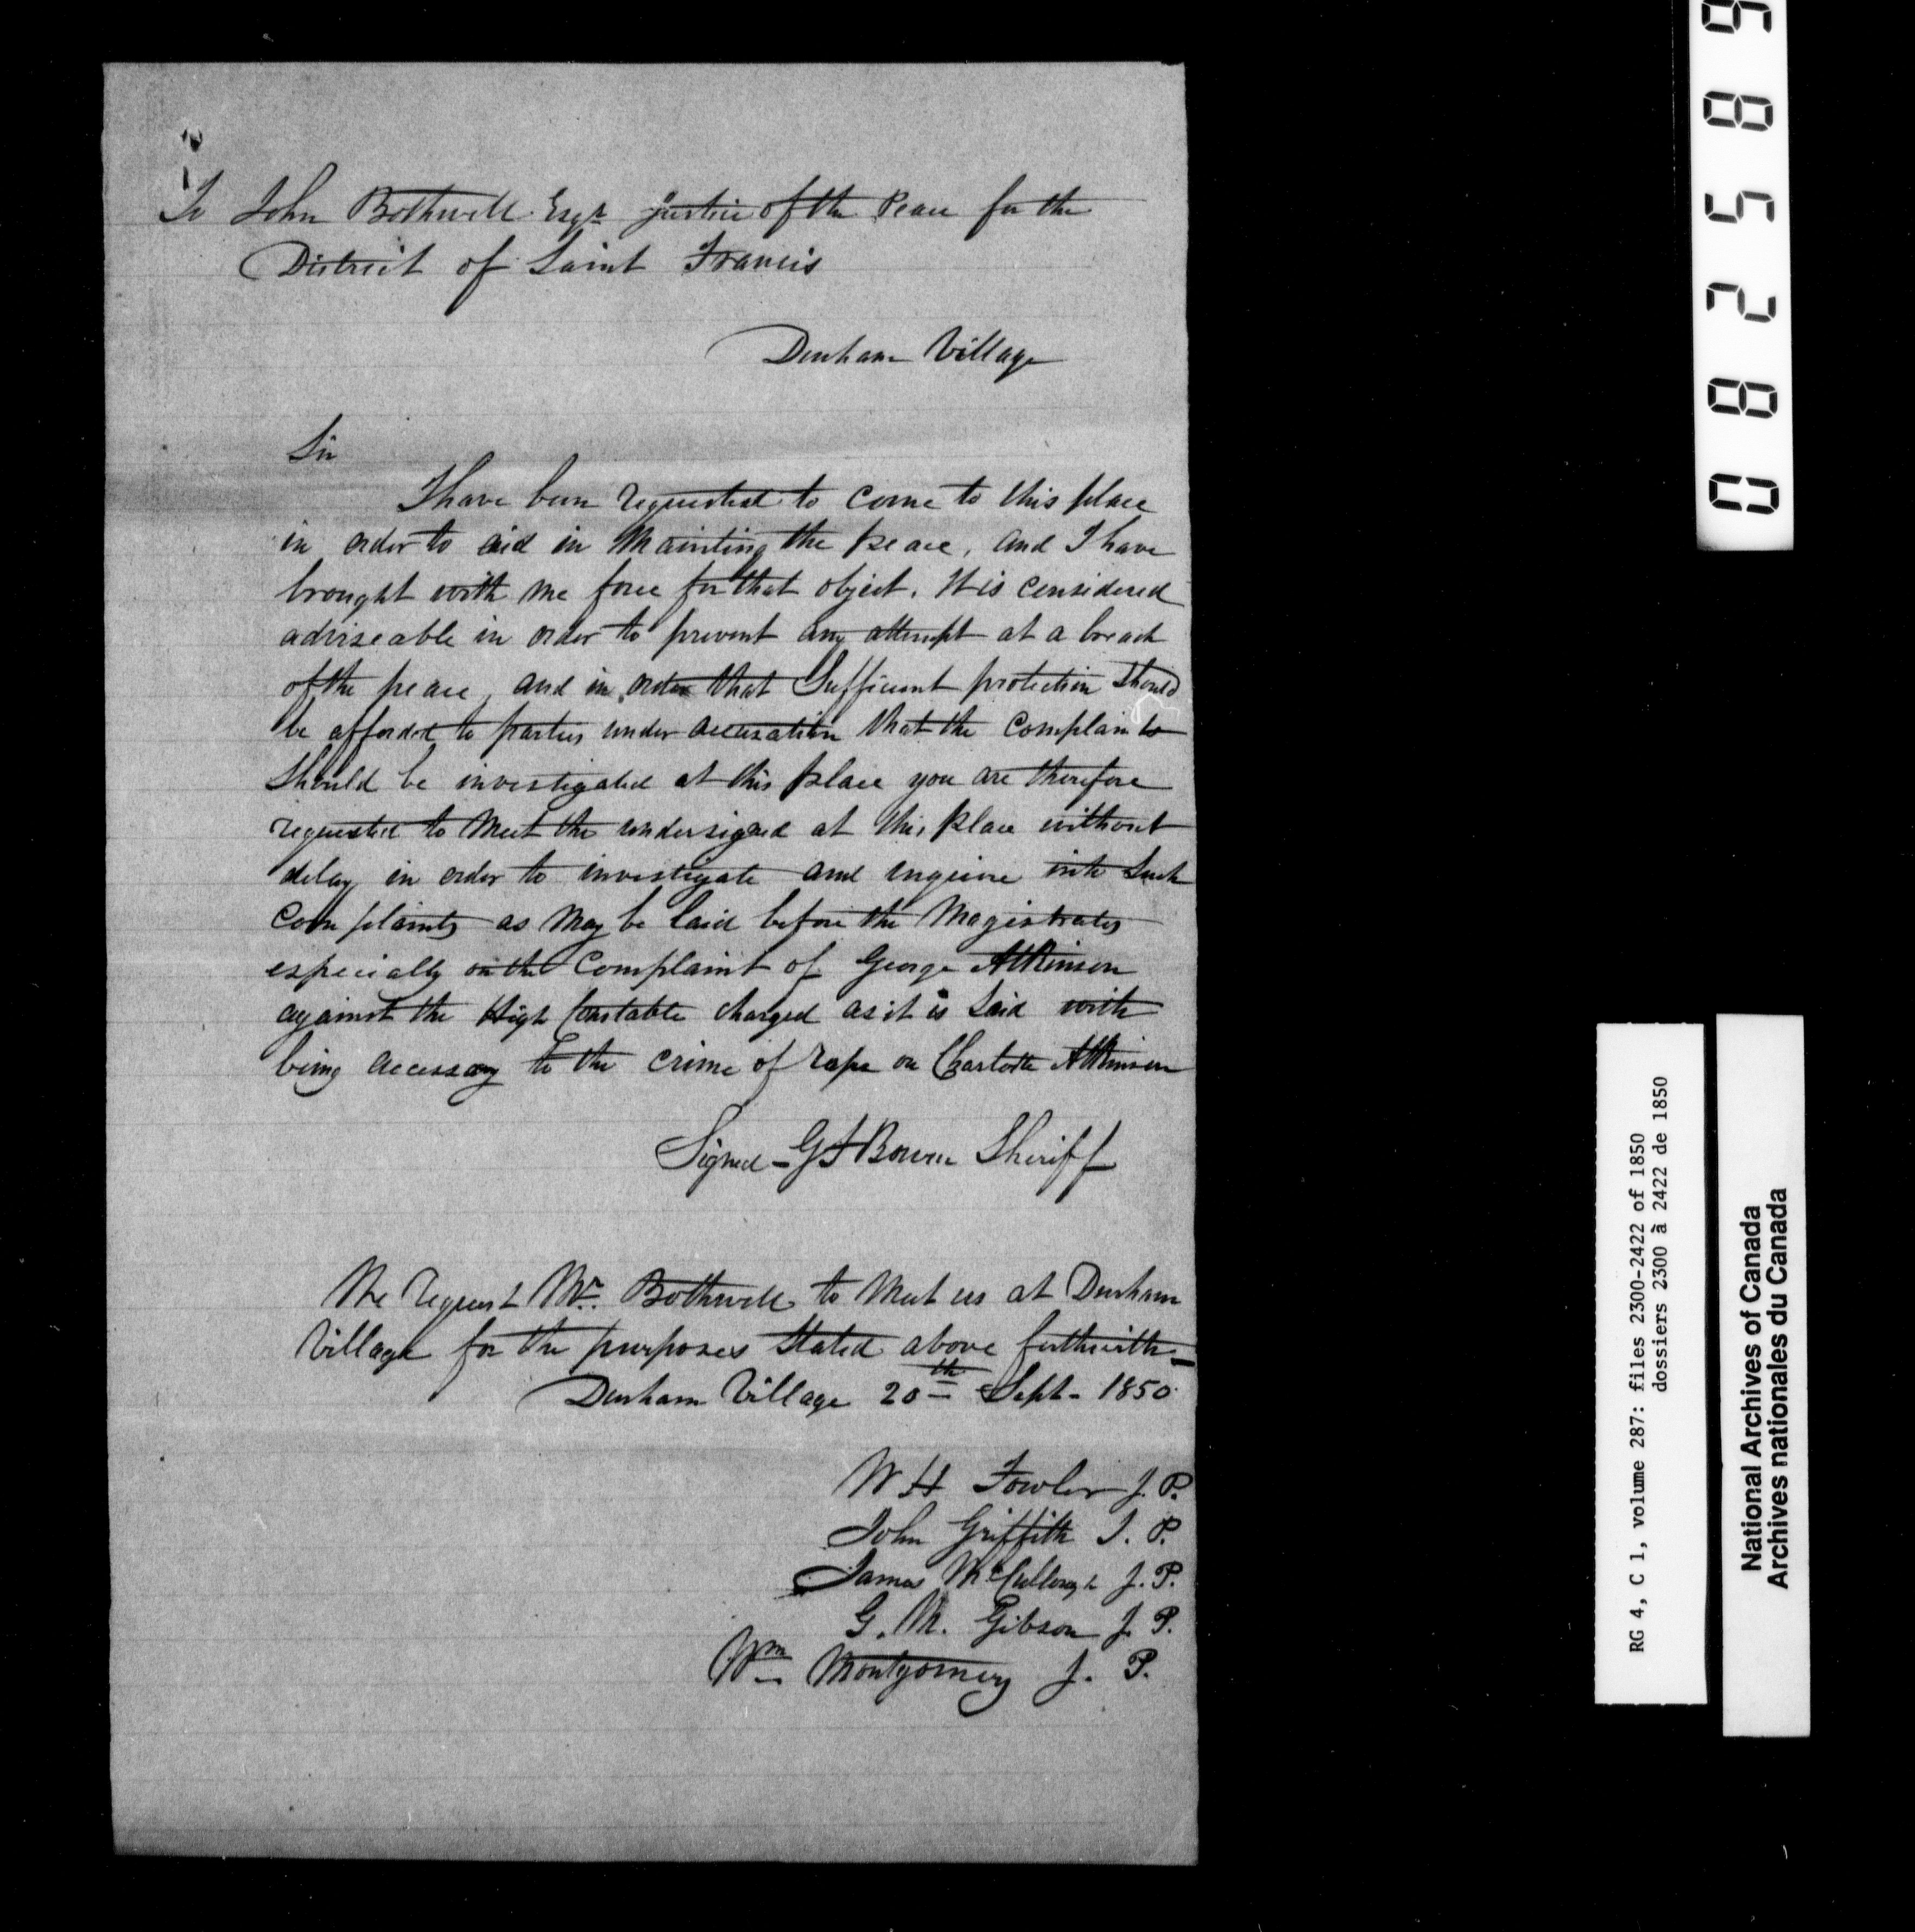 To John Bothwell Esqr Justice of the Peace for the
District of Saint Francis
Durham Village
Sir
I have been requested to come to this place
in order to aid in Mainting the peace, and I have
brought with me force for that object. It is considered
adviseable in order to prevent any attempt at a breach
of the peace, and in order that Sufficient protection Should
be afforded to parties under accusation that the Complaints
Should be investigated at this place you are therefore
requested to Meet the undersigned at this place without
delay in order to investigate and enquire into Such
Complaints as May be laid before the Magistrates
especially on the Complaint of George Atkinson
against the High Constable charged as it is Said with
being accessary to the crime of rape on Charlotte Atkinson
Signed - G F Bowen Sheriff
We request Mr. Bothwell to Meet us at Durham
Village for the purposes Stated above forthwith -
Durham Village 20th Sept - 1850
W H Fowler J. P.
John Griffith J. P.
James McCullough J. P.
G. M. Gibson J. P.
Wm Montgomery J. P.
082589
RG 4, C 1, volume 287: files 2300-2422 of 1850
dossiers 2300 à 2422 de 1850
National Archives of Canada
Archives nationales du Canada